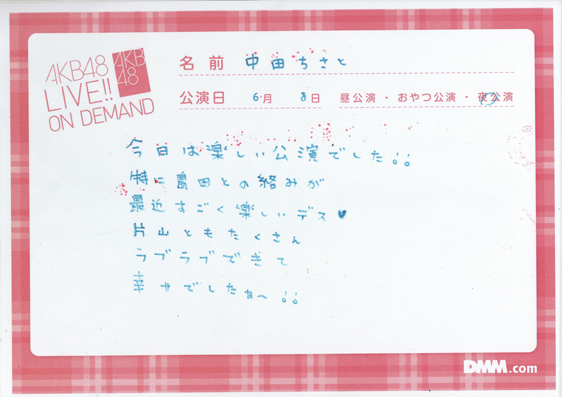 AKB48
LIVE!!
ON DEMAND
AKB
48
名前 中田ちさと
公演日 6月 8日 昼公演・おやつ公演・夜公演
今日は楽しい公演でした!!
特に島田との絡みが
最近すごく楽しいデス♥
片山ともたくさん
ラブラブできて
幸せでしたぁ〜!!
DMM.com